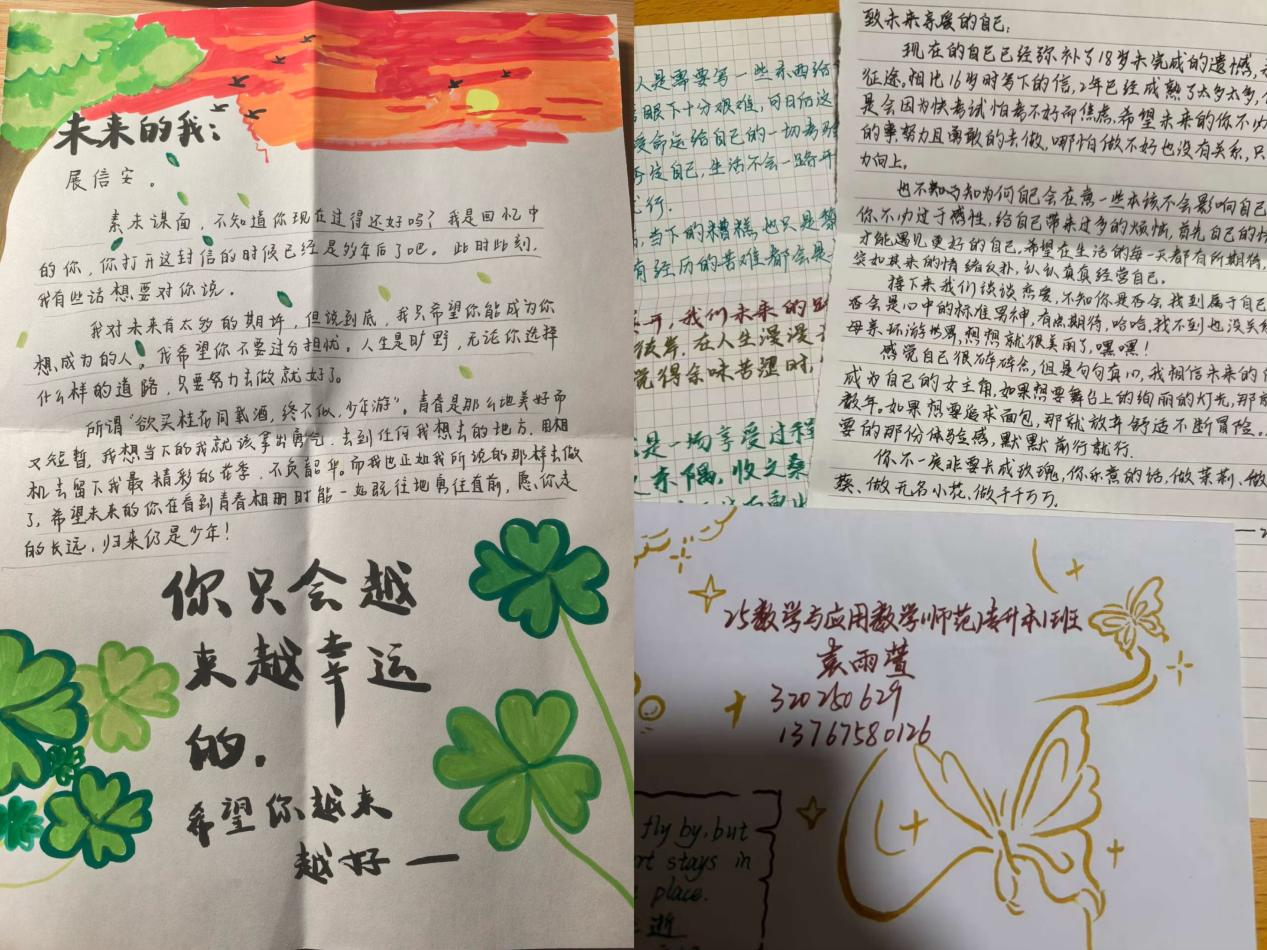 未来的我:
展信安。
素未谋面，不知道你现在过得还好吗？我是回忆中
的你，你打开这封信的时候已经是多年后了吧。此时此刻，
我有些话想要对你说。
我对未来有太多的期许，但说到底，我只希望你能成为你
想成为的人。我希望你不要过分担忧。人生是旷野，无论你选择
什么样的道路，只要努力去做就好了。
所谓“欲买桂花同载酒，终不似，少年游”。青春是那么地美好而
又短暂，我想当下的我就该拿出勇气，去到任何我想去的地方，用相
机去留下我最精彩的花季，不负韶华。而我也正如我所说的那样去做
了，希望未来的你在看到青春相册时能一如既往地勇往直前，愿你走
的长远，归来仍是少年！
你只会越
来越幸运
的.
希望你越来
越好一
人是需要写一些东西给
眼下十分艰难，可日后这
受命运给自己的一切考
自己，生活不会一路
行.
当下的糟糕，也只是
有经历的苦难都会是
开，我们未来的路
彼岸，在人生漫漫
觉得余味苦涩时，
是一场享受过程
东隅，收之桑
致未来亲爱的自己:
现在的自己已经弥补了18岁未完成的遗憾，
征途。相比16岁时写下的信，2年已经成熟了太多太多，
是会因为快考试怕考不好而焦虑，希望未来的你不
的事努力且勇敢的去做，哪怕做不好也没有关系，只
力向上。
也不知为何自己会在意一些本该不会影响自己
你不必过于感性，给自己带来过多的烦恼，首先自己的
才能遇见更好的自己，希望在生活的每一天都有所期待，
突如其来的情绪反扑，认认真真经营自己。
接下来我们谈谈恋爱，不知你是否会找到属于自己
否会是心中的标准男神，有点期待，哈哈，找不到也没关系
母亲环游世界，想想就很美丽了，嘿嘿！
感觉自己很碎碎念，但是句句真心，我相信未来的
成为自己的女主角，如果想要舞台上的绚丽的灯光，那就
数年。如果想要追求面包，那就放弃舒适不断冒险。
要的那份体验感，默默前行就行.
你不一定非要长成玫瑰，你乐意的话，做茉莉、做
葵、做无名小花、做千千万万.
25数学与应用数学(师范)专升本1班
袁雨萱
320250629
13767580126
fly by, but
stays in
place.
逝